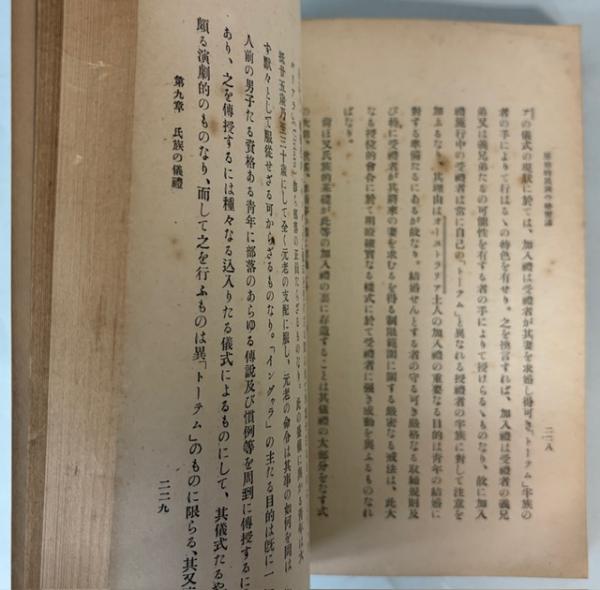 原始時民族の秘密講
二二八
ア」の儀式の現狀に於ては、加入禮は受禮者が其妻を求婚し得可き「トーテム」半族の
者の手によりて行はるゝの特色を有せり。之を換言すれば、加入禮は受禮者の義兄
弟又は義兄弟たるの可能性を有する者の手によりて授けらるゝものなり、故に加入
禮施行中の受禮者は常に自己の「トーテム」と異なれる授禮者の半族に對して注意を
加ふるなり。其理由はオーストラリア土人の加入禮の重要なる目的は靑年の結婚に
對する準備たるにあるが故なり。結婚せんとする者の守る可き嚴格なる取締規則及
び特に受禮者が其將來の妻を求むるを得る制限範圍に關する嚴密なる戒法は、此大
なる授位的會合に於て明瞭確實なる樣式に於て受禮者に强き感動を與ふるものなれ
ばなり。
尙ほ又氏族的基礎が此等の加入禮の裏に存在することは其儀禮の大部分をなす式
抵廿五歲乃至三十歲にして全く元老の支配に服し、元老の命令は其事の如何を問は
ず默々として服從せざる可からざるものなり。「イングゥラ」の主たる目的は旣に一
人前の男子たる資格ある靑年に部落のあらゆる傳說及び慣例等を周到に傳授するに
あり、之を傳授するには種々なる込入りたる儀式によるものにして、其儀式たるや
頗る演劇的のものなり、而して之を行ふものは異「トーテム」のものに限らる、其又
第九章 氏族の儀禮
二二九